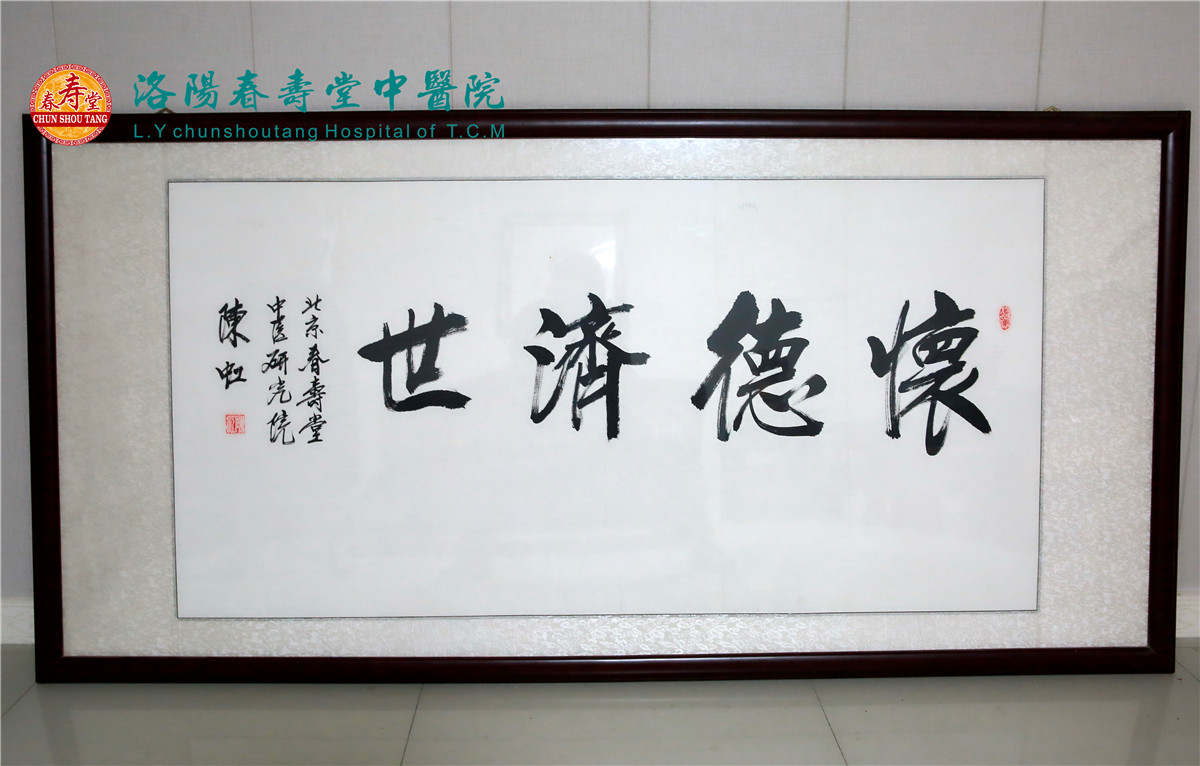 春寿堂
CHUN SHOU TANG
洛陽春壽堂中醫院
L.Y chunshoutang Hospital of T.C.M
懷德濟世
北京春壽堂
中医研究院
陳虹